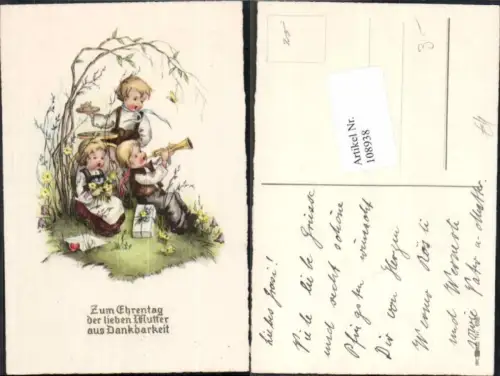 Zum Ehrentag
der lieben Mutter
aus Dankbarkeit
35
Artikel Nr.
108938
Liebes Gromi!
Viele liebe Grüsse
und recht schöne
Pfingsten wünscht
Dir von Herzen
Werner Rösli
und Wernerli
Vati u. Mutter.